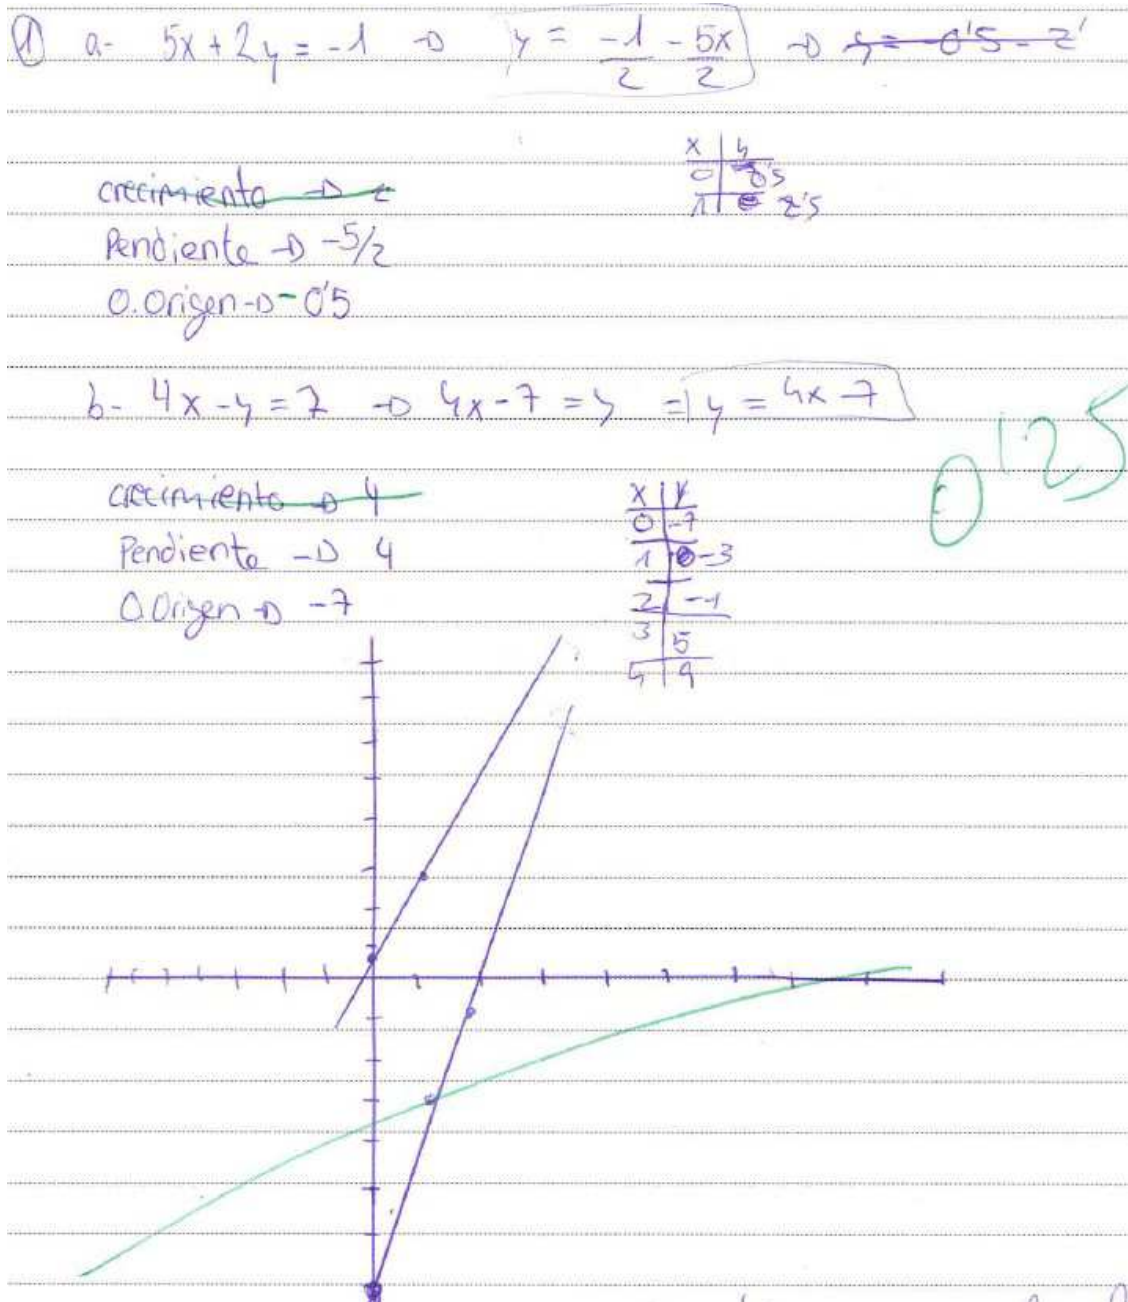 ① a- 5x + 2y = -1 → y = -1/2 - 5x/2 → y = -0'5 - 2'
x | y
0 | 0's
1 | 2's
crecimiento →
Pendiente → -5/2
O. Origen → -0'5
b- 4x - y = 7 → 4x - 7 = y = y = 4x - 7
0'25
crecimiento → 4
x | y
0 | -7
Pendiente → 4
1 | -3
O. Origen → -7
2 | -1
3 | 5
4 | 9